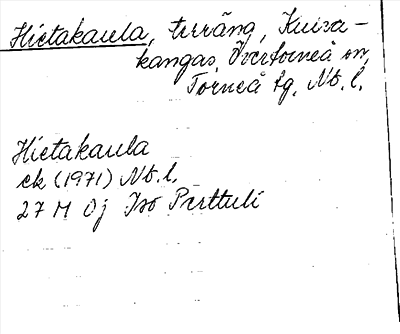 Hietakaula, terräng, Kuiva-
kangas, Övertorneå sn,
Torneå tg, Nb. l.
Hietakaula
ek (1971) Nb. l.
27 M 0j Iso Perttuli